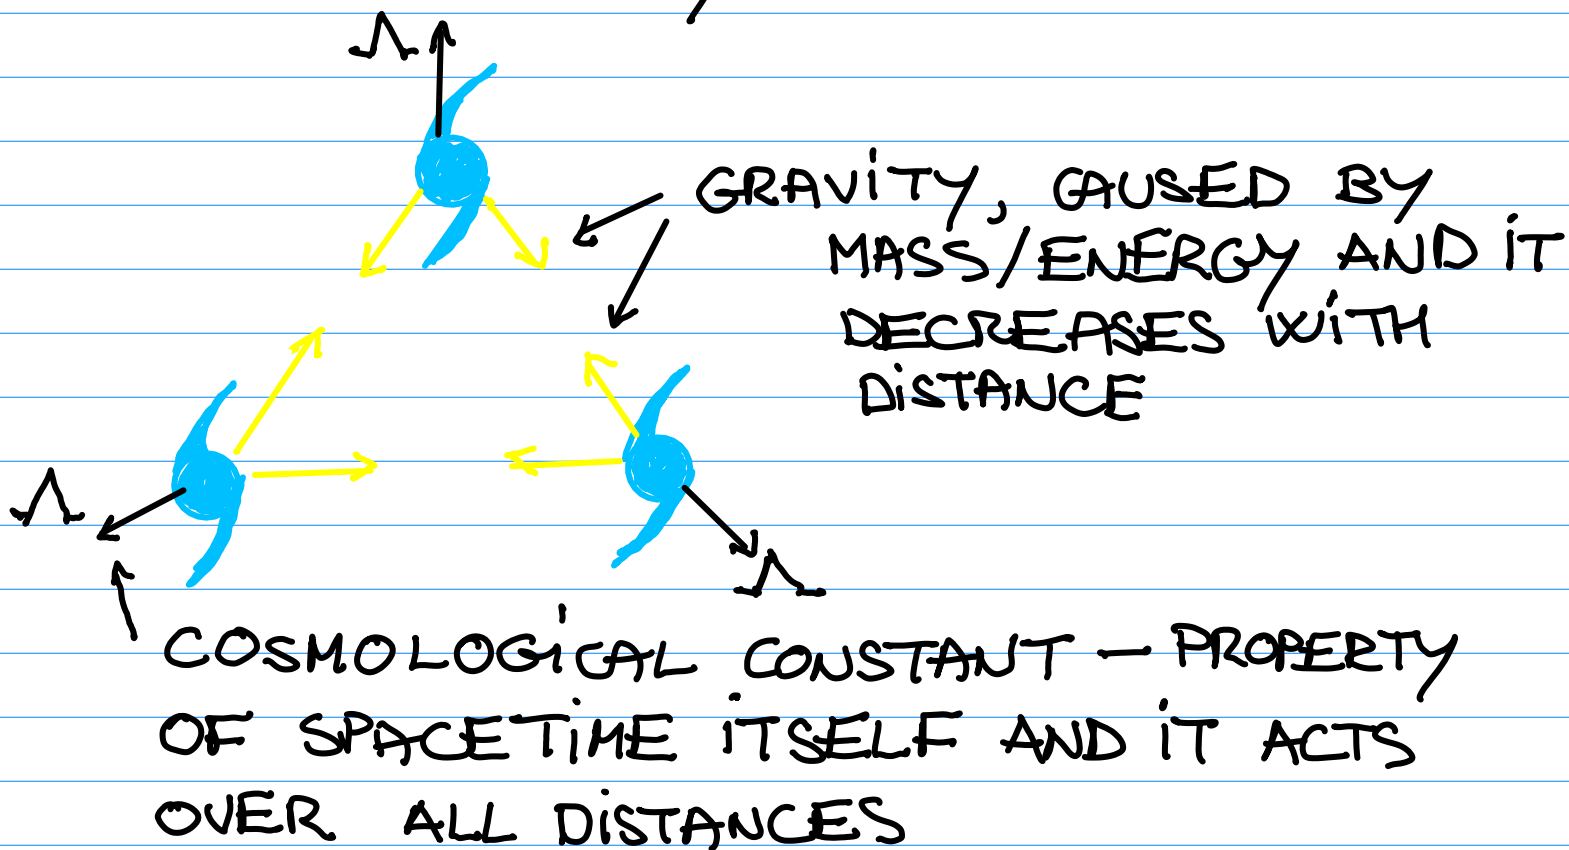 Λ
GRAVITY, CAUSED BY
MASS/ENERGY AND IT
DECREASES WITH
DISTANCE
Λ
Λ
COSMOLOGICAL CONSTANT – PROPERTY
OF SPACETIME ITSELF AND IT ACTS
OVER ALL DISTANCES